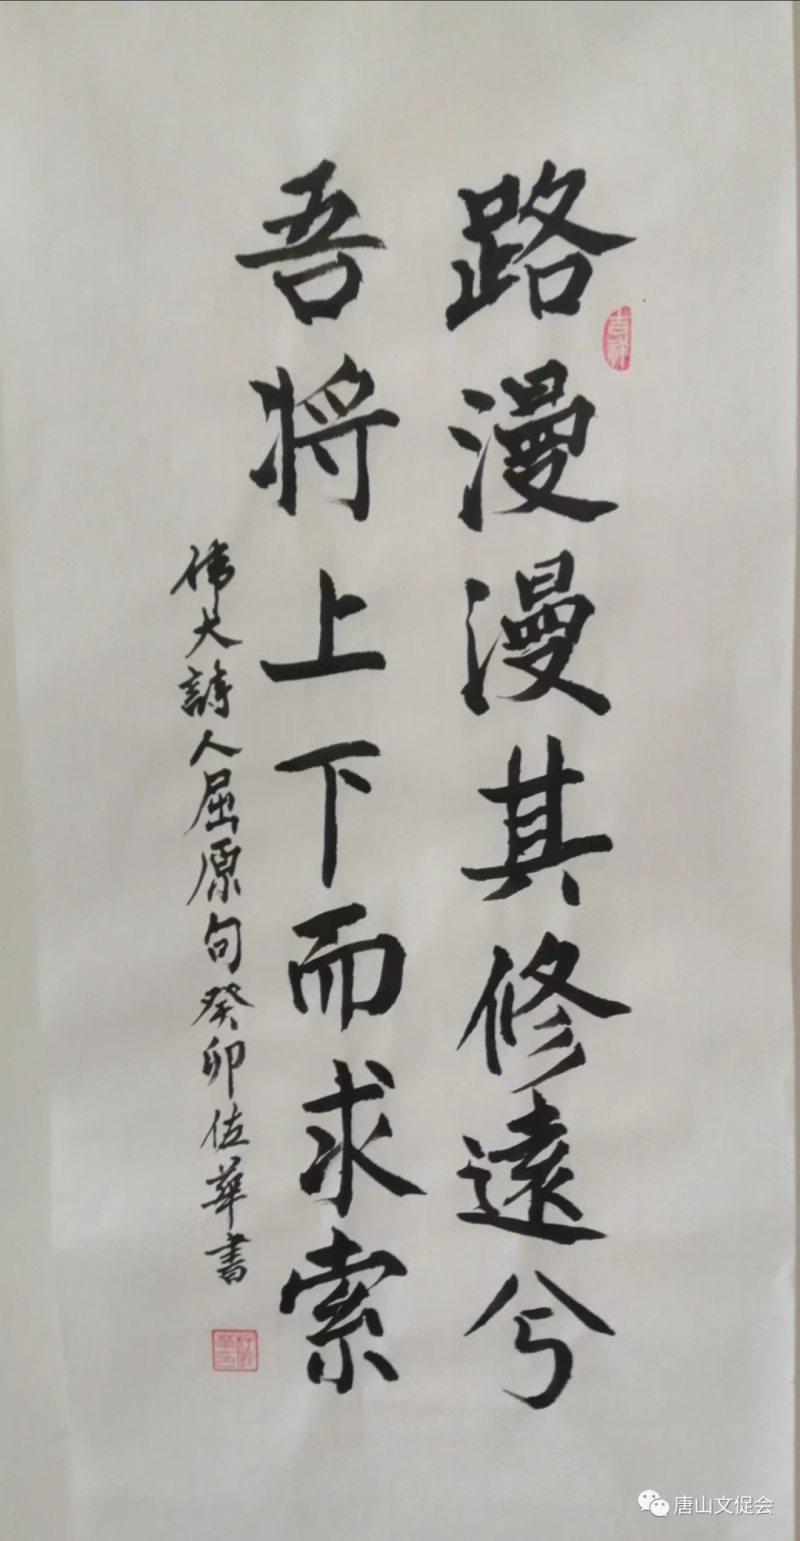 路漫漫其修遠兮
吾将上下而求索
偉大詩人屈原句癸卯佐華書
吉祥
唐山文促会